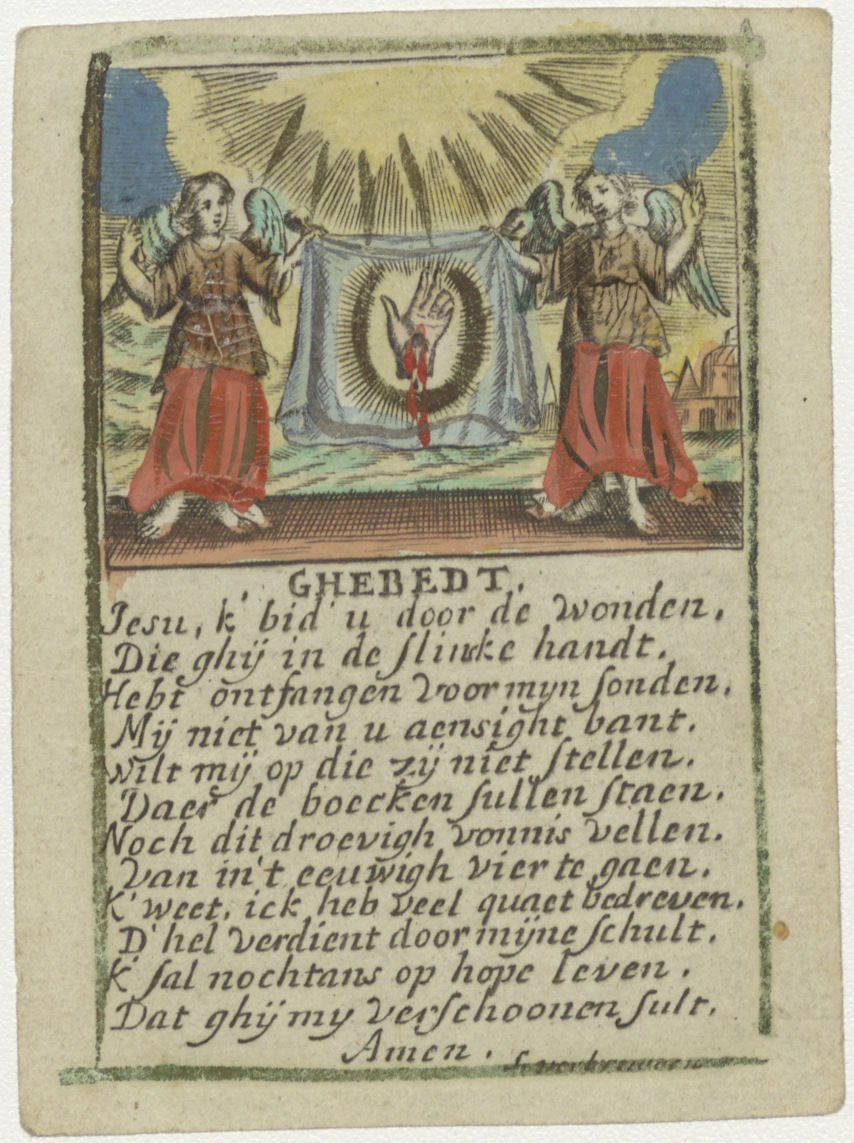 GHEBEDT.
Jesu, k' bid' u door de wonden,
Die ghij in de slinke handt.
Hebt ontfangen voor myn sonden.
Mij niet van u aensight bant.
Wilt mij op die zij niet stellen.
Daer de boecken sullen staen.
Noch dit droevigh vonnis vellen.
Van in't eeuwigh vier te gaen.
K' weet, ick heb veel quaet bedreven.
D' hel verdient door mijne schult.
K' sal nochtans op hope leven.
Dat ghij my verschoonen sult.
Amen.